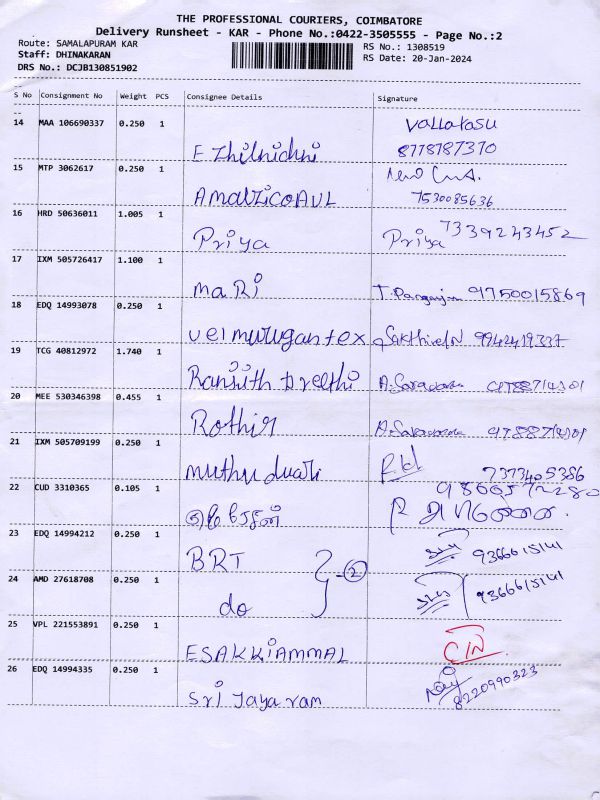 THE PROFESSIONAL COURIERS, COIMBATORE
Delivery Runsheet - KAR - Phone No.:0422-3505555 - Page No.:2
Route: SAMALAPURAM KAR
RS No.: 1308519
Staff: DHINAKARAN
RS Date: 20-Jan-2024
DRS No.: DCJB130851902
S No Consignment No Weight PCS Consignee Details Signature
14 MAA 106690337 0.250 1
8778787370
15 MTP 3062617 0.250 1
7530085636
16 HRD 50636011 1.005 1
Priya Priya 7339243452
17 IXM 505726417 1.100 1
maRi 9750015869
18 EDQ 14993078 0.250 1
velmurugan tex 9942419337
19 TCG 40812972 1.740 1
Ranjith preethi
20 MEE 530346398 0.455 1
21 IXM 505709199 0.250 1
7373405386
22 CUD 3310365 0.105 1
23 EDQ 14994212 0.250 1
BRT 9366615141
24 AMD 27618708 0.250 1
do 2 9366615141
25 VPL 221553891 0.250 1
ESAKKIAMMAL
26 EDQ 14994335 0.250 1
Sri Jayaram 8220990323